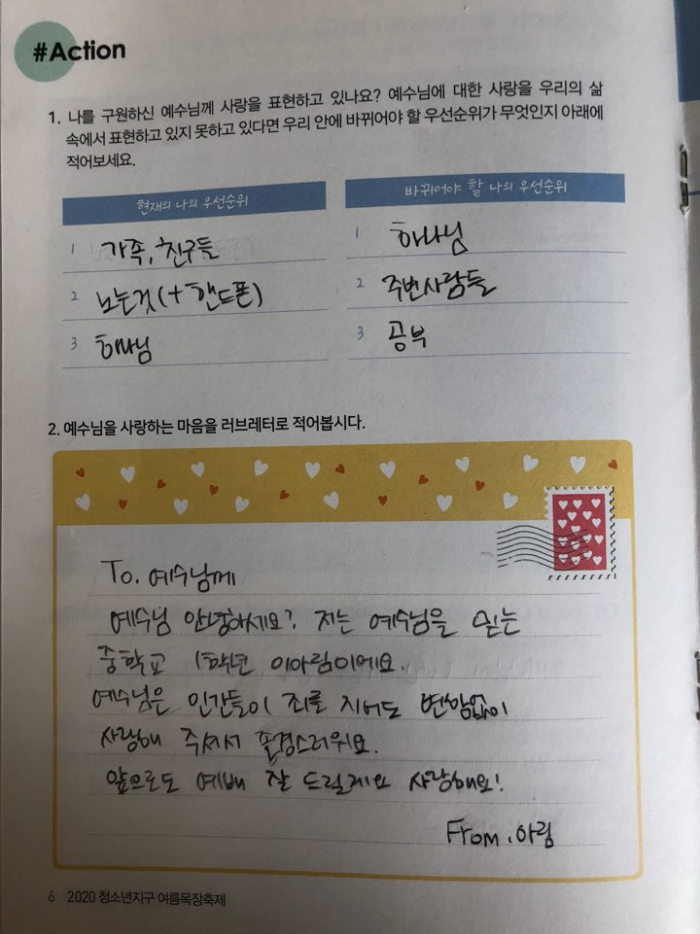 #Action
1. 나를 구원하신 예수님께 사랑을 표현하고 있나요? 예수님에 대한 사랑을 우리의 삶
속에서 표현하고 있지 못하고 있다면 우리 안에 바뀌어야 할 우선순위가 무엇인지 아래에
적어보세요.
현재의 나의 우선순위
1 가족, 친구들
2 노는것(+핸드폰)
3 하나님
바뀌어야 할 나의 우선순위
1 하나님
2 주변사람들
3 공부
2. 예수님을 사랑하는 마음을 러브레터로 적어봅시다.
To. 예수님께
예수님 안녕하세요? 저는 예수님을 믿는
중학교 1학년 이아림이에요.
예수님은 인간들이 죄를 지어도 변함없이
사랑해 주셔서 존경스러워요.
앞으로도 예배 잘 드릴게요 사랑해요!
From. 아림
6 2020 청소년지구 여름목장축제